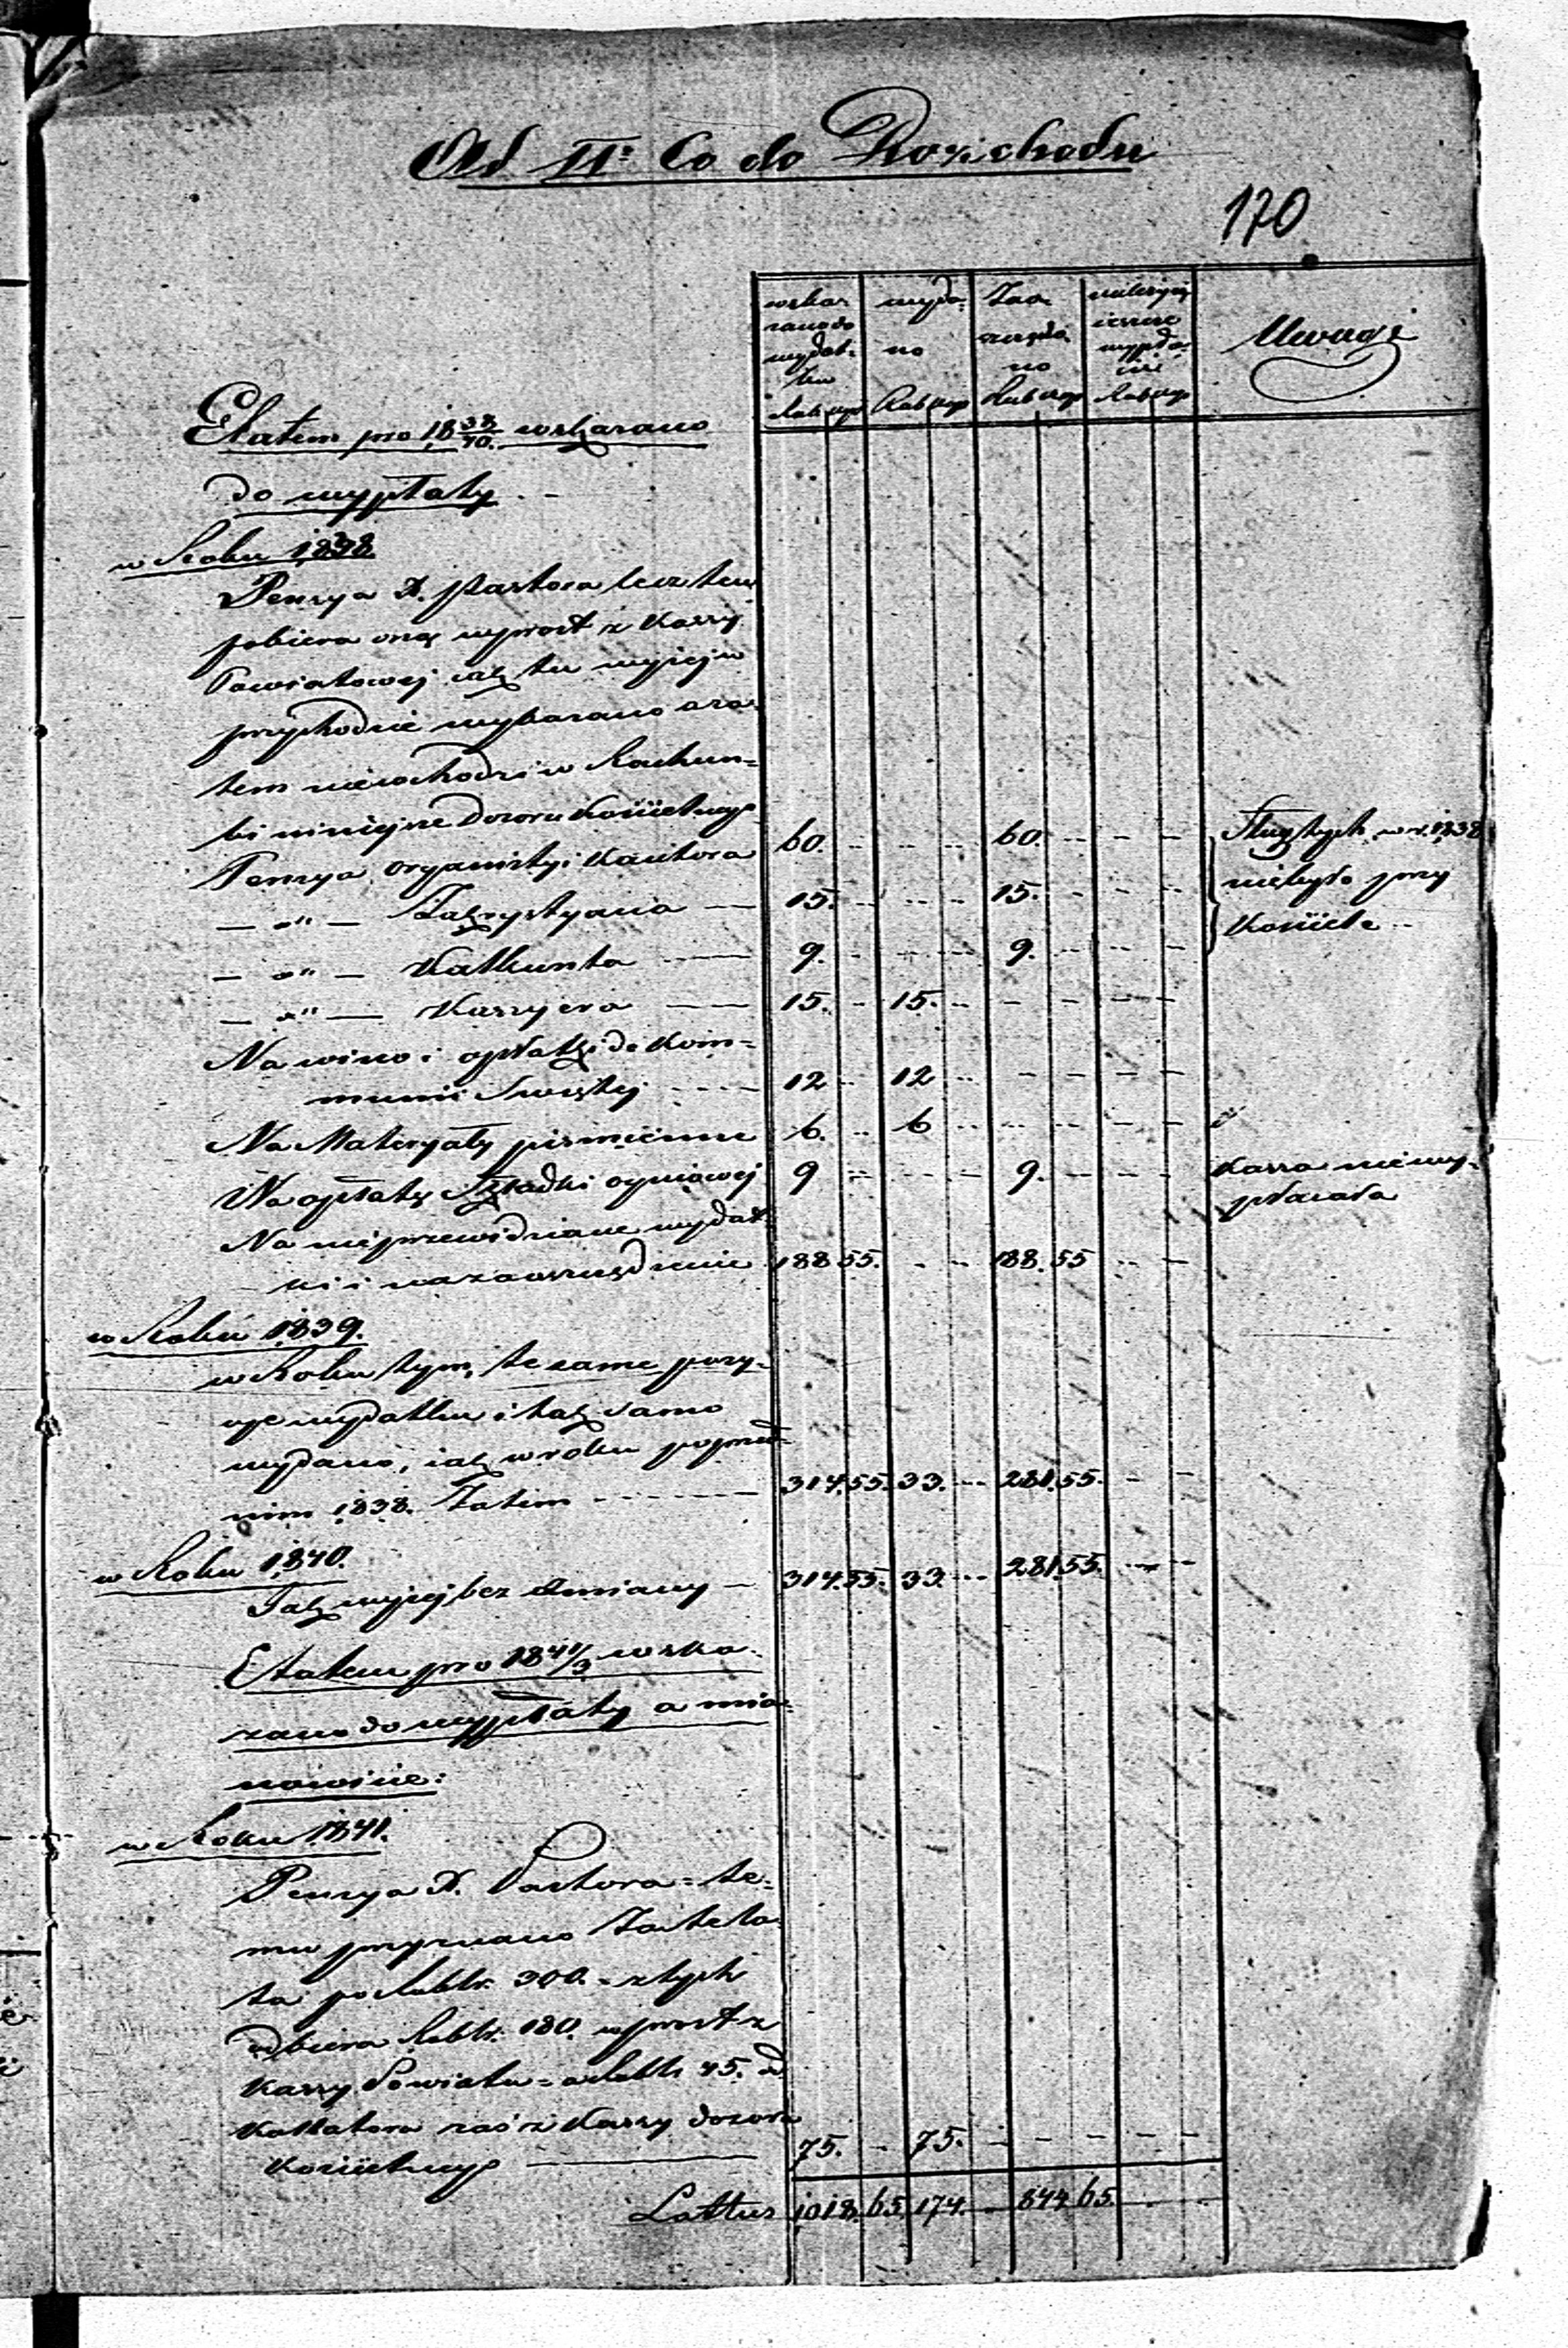 Ad IIº Co do Rozchodu
170
wska-
zano do
wydat-
ku
Rub kop
wyda-
no
Rub kop
Zao-
szczędzo
no
Rub kop
należy się
ieszcze
wypła-
cić
Rub kop
Uwagi
Etatem pro 18 38/40. wskazano
do wypłaty
w Roku 1838
Pensya X. Pastora lecz ten
pobiera onę wprost z Kassy
Powiatowej iak tu wyżej w
przychodzie wykazano a za-
tem niewchodzi w Rachun-
ki niniejsze Dozoru Kościelnego
Pensya organisty i Kantora 60. - - - 60. - - - Sług tych w r. 1838
— „ — Zakrystyana — 15. - - - 15. - - - niebyło przy
— „ — Kalkanta — 9. - - - 9. - - - Kościele
— „ — Kassyera — 15. - 15. - - - - -
Na wino i opłatki do Kom-
munii Swiętej - - - 12 - 12 - - - - -
Na Materyały piśmienne 6. - 6 - - - - -
Na opłatę Składki ogniowej 9 - - - 9. - - - Kassa niewy-
płacała
Na nieprzewidziane wydat-
ki i na zaoszczędzenie 188 55. - - 188. 55 - -
w Roku 1839.
w Roku tym, te same pozy-
cye wydatku i tak samo
wydano, iak w roku poprzed-
nim 1838. Zatem - - - 314. 55. 33. - 281. 55. - -
w Roku 1840.
Jak wyżej bez zmiany — 314. 55. 33. - 281. 55. - -
Etatem pro 1841/3 wska-
zano do wypłaty a mia-
nowicie:
w Roku 1841.
Pensya X. Pastora = te-
mu przyznano Za te la-
ta po Rubl: 300. = z tych
odbiera Rubl: 180. wprost z
Kassy Powiatu = a Rubli 45. od
Kollatora zaś z Kassy dozoru
Kościelnego — 75. - 75. - - - - -
Lattus 1018. 65. 174. — 844 65. - -